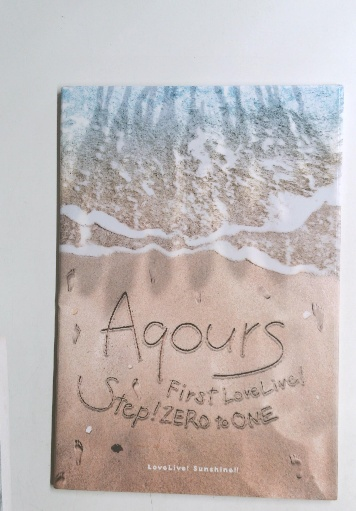 Aqours
First LoveLive!
Step! ZERO to ONE
LoveLive! Sunshine!!